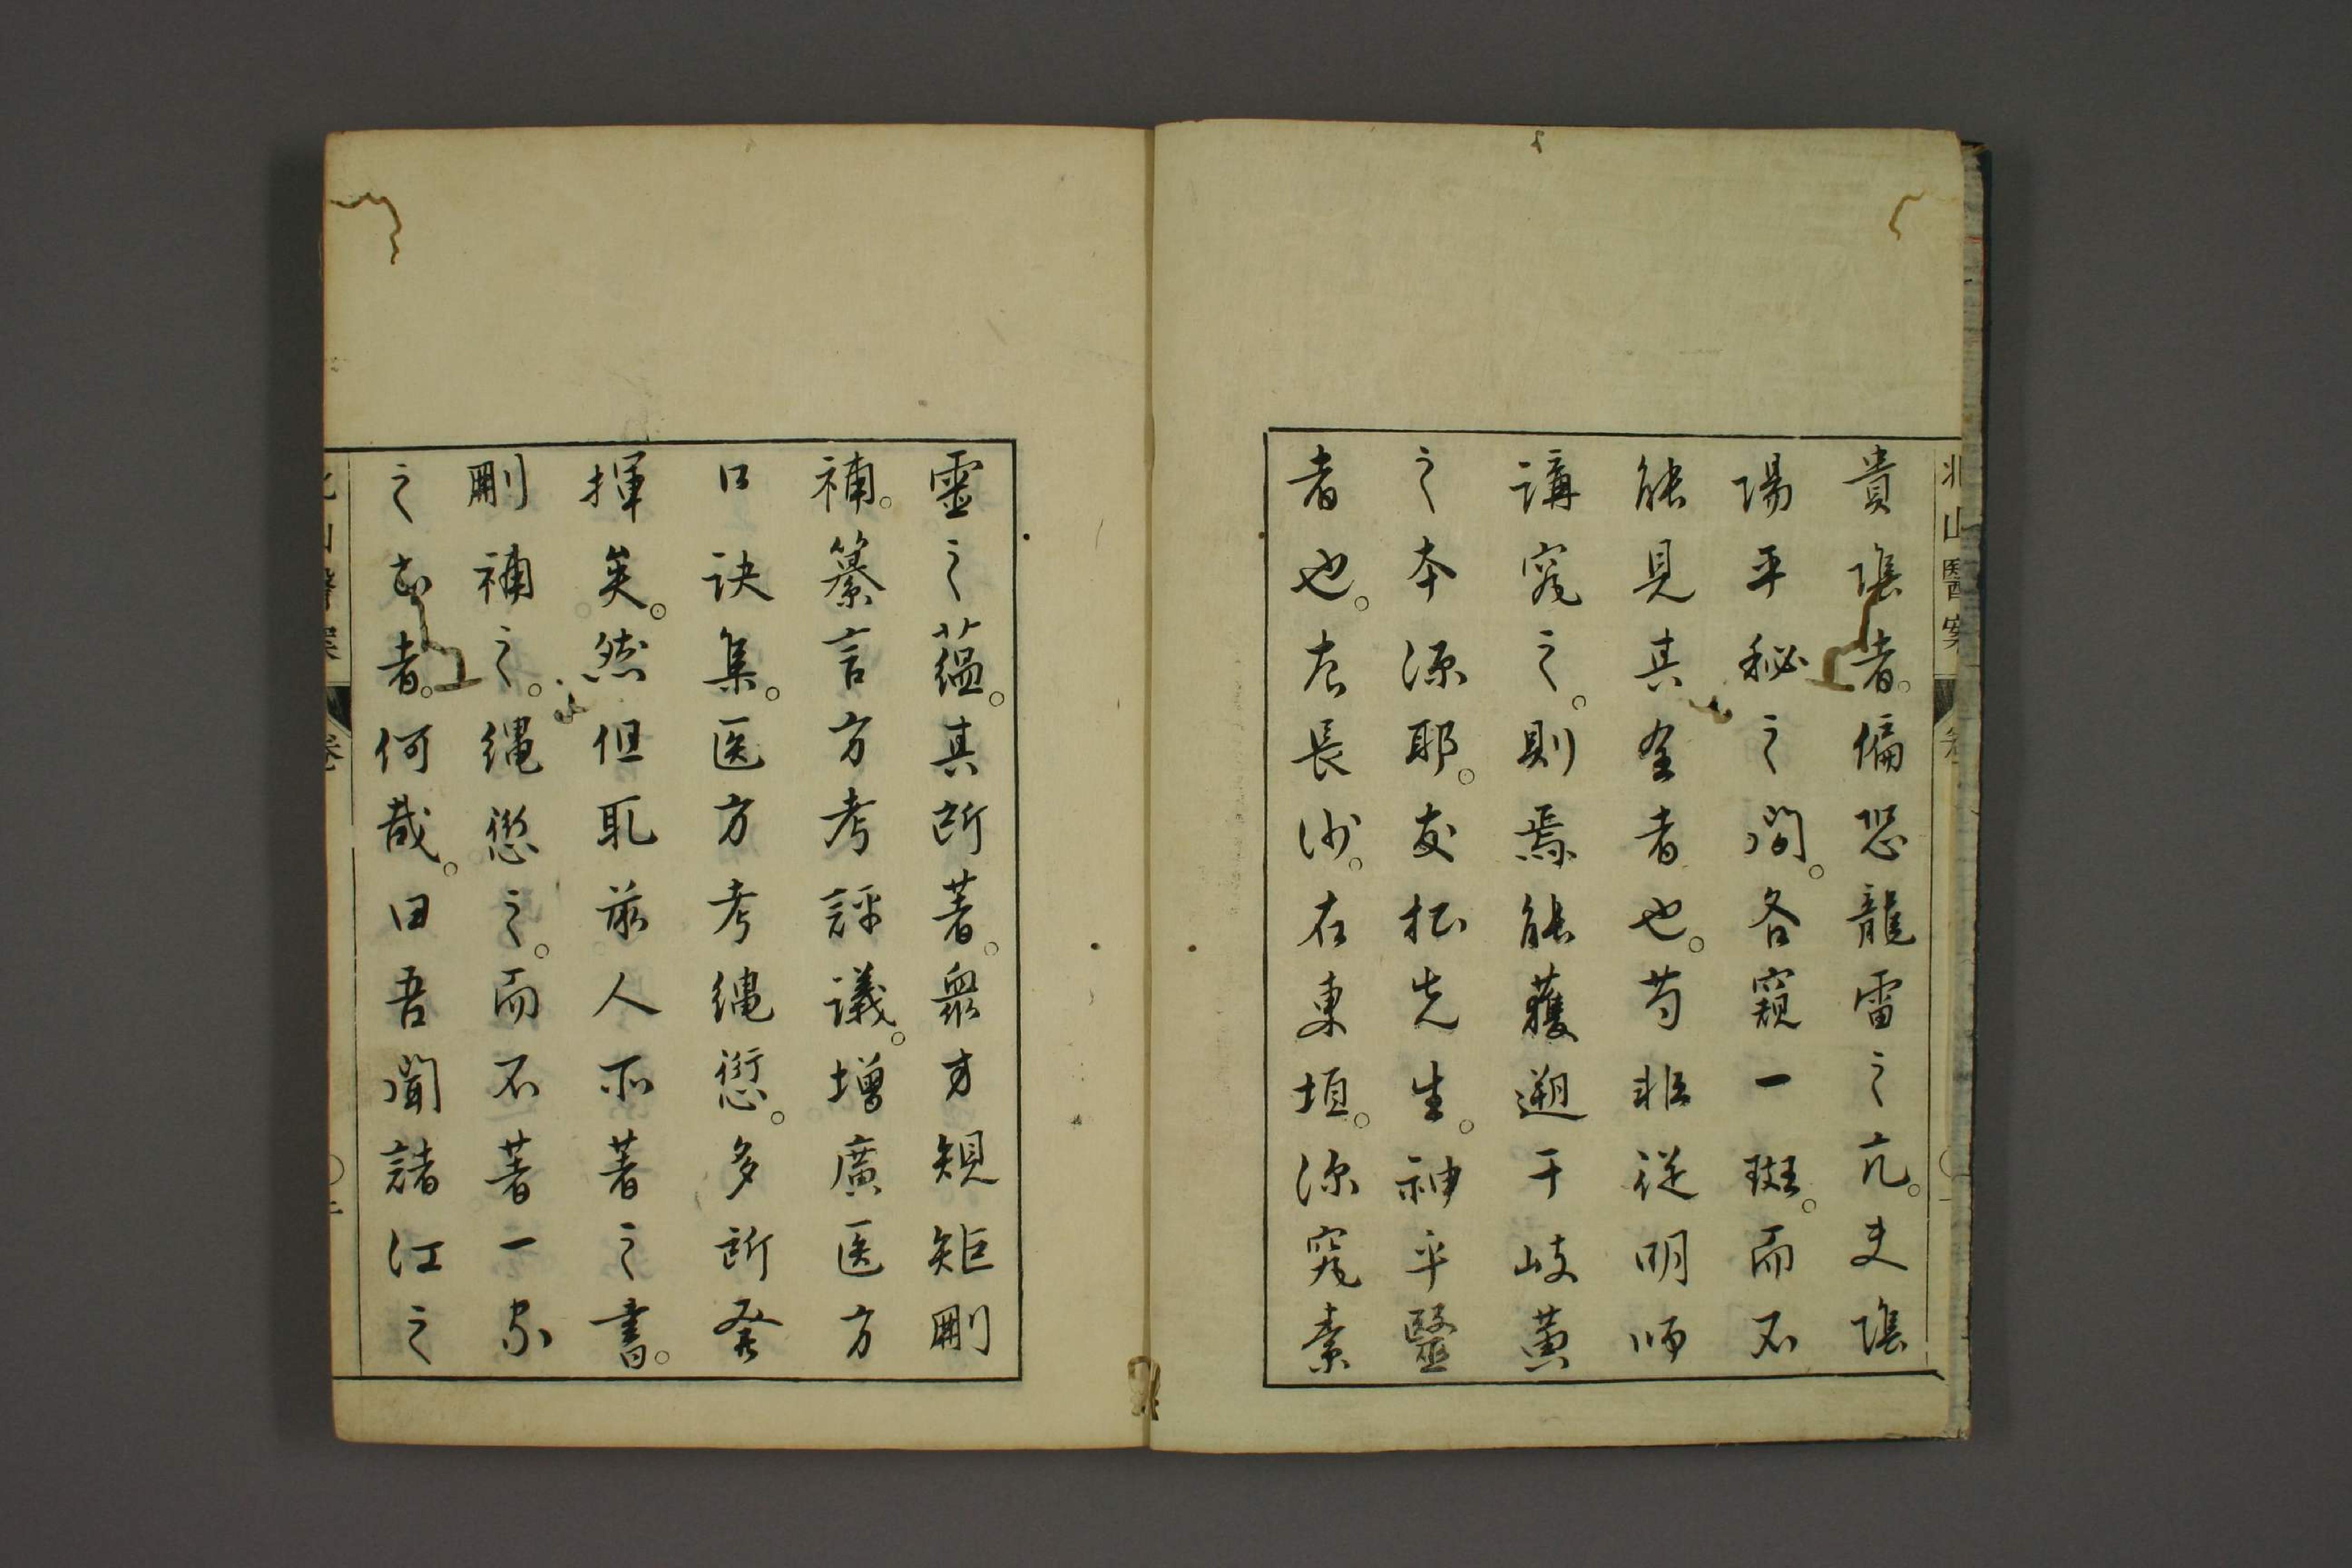 北山醫案
貴陰者。偏恐龍雷之亢。夫陰
陽平秘之間。各窺一斑。而不
能見其全者也。苟非從明師
講究之。則焉能獲遡于岐黃
之本源耶。友松先生。神乎醫
者也。左長沙。右東垣。深究素
靈之蘊。其所著。衆方規矩刪
補。纂言方考評議。增廣医方
口訣集。医方考繩愆。多所發
揮矣。然但取前人所著之書。
刪補之。繩愆之。而不著一家
之言者。何哉。曰吾聞諸江之
北山醫案